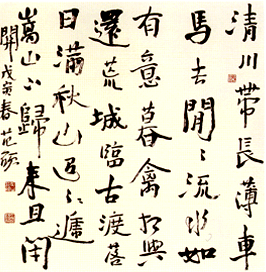 清川帶長薄車
馬去閒〻流水如
有意暮禽相與
還荒城臨古渡落
日滿秋山迢遞
嵩山下歸來且閉
關戊寅春范